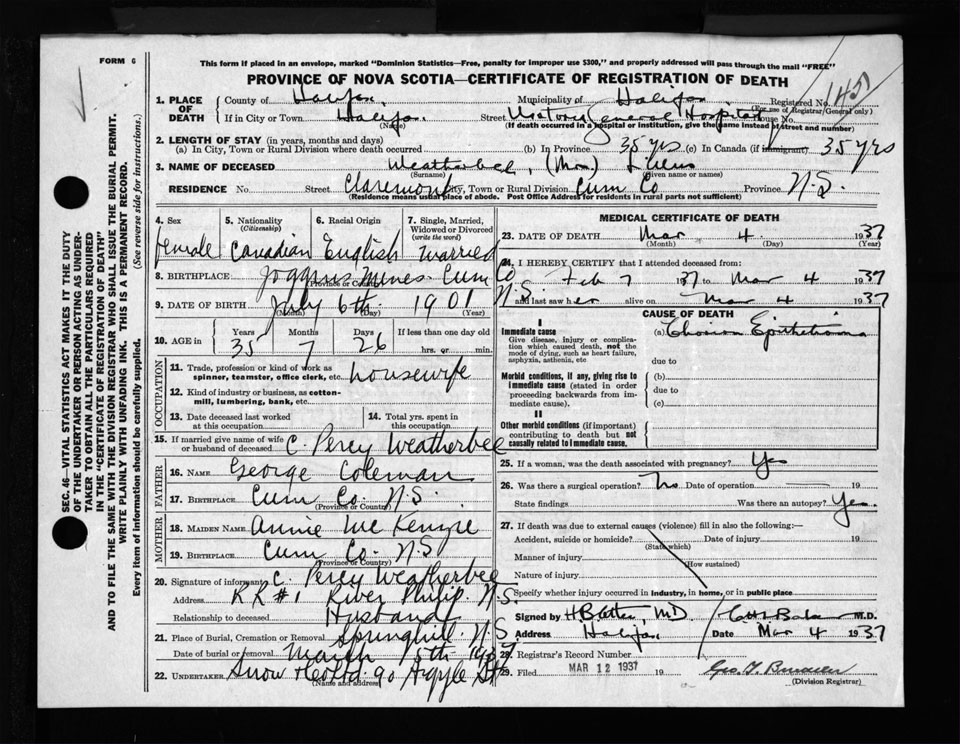 FORM 6
This form if placed in an envelope, marked "Dominion Statistics—Free, penalty for improper use $300," and properly addressed will pass through the mail "FREE"
PROVINCE OF NOVA SCOTIA—CERTIFICATE OF REGISTRATION OF DEATH
1. PLACE OF DEATH
County of Halifax Municipality of Halifax Registered No.
(For use of Registrar/General only)
If in City or Town Halifax Street Victoria General Hospital House No.
(Name) (If death occurred in a hospital or institution, give the name instead of street and number)
2. LENGTH OF STAY (in years, months and days)
(a) In City, Town or Rural Division where death occurred (b) In Province 35 yrs (c) In Canada (if immigrant) 35 yrs
3. NAME OF DECEASED Weatherbee, (Mrs)
(Surname) (Given name or names)
RESIDENCE No. Street Claremont City, Town or Rural Division Cum Co Province N.S.
(Residence means usual place of abode. Post Office Address for residents in rural parts not sufficient)
4. Sex female
5. Nationality (Citizenship) Canadian
6. Racial Origin English
7. Single, Married, Widowed or Divorced (write the word) married
8. BIRTHPLACE Joggins Mines Cum Co N.S.
(Province or Country)
9. DATE OF BIRTH July 6th 1901
(Month) (Day) (Year)
10. AGE in Years 35 Months 7 Days 26 If less than one day old hrs. or min.
OCCUPATION
11. Trade, profession or kind of work as spinner, teamster, office clerk, etc. housewife
12. Kind of industry or business, as cotton-mill, lumbering, bank, etc.
13. Date deceased last worked at this occupation
14. Total yrs. spent in this occupation
15. If married give name of wife or husband of deceased C. Percy Weatherbee
FATHER
16. NAME George Coleman
17. BIRTHPLACE Cum Co. N.S.
(Province or Country)
MOTHER
18. MAIDEN NAME Annie McKenzie
19. BIRTHPLACE Cum Co. N.S
(Province or Country)
20. Signature of informant C. Percy Weatherbee
Address RR#1 River Philip N.S.
Relationship to deceased Husband
21. Place of Burial, Cremation or Removal Springhill N.S.
Date of burial or removal March 5th 1937
22. UNDERTAKER Snow & Co Ltd 90 Argyle St
(Name and address)
MEDICAL CERTIFICATE OF DEATH
23. DATE OF DEATH Mar 4 1937
(Month) (Day) (Year)
24. I HEREBY CERTIFY that I attended deceased from:
Feb 7 1937 to Mar 4 1937
and last saw her alive on Mar 4 1937
CAUSE OF DEATH
I
Immediate cause
Give disease, injury or complication which caused death, not the mode of dying, such as heart failure, asphyxia, asthenia, etc
(a) Chorion Epithelioma
due to
Morbid conditions, if any, giving rise to immediate cause (stated in order proceeding backwards from immediate cause).
(b)
due to
(c)
II
Other morbid conditions (if important) contributing to death but not causally related to immediate cause.
25. If a woman, was the death associated with pregnancy? Yes
26. Was there a surgical operation? No Date of operation — 19
State findings Was there an autopsy? Yes.
27. If death was due to external causes (violence) fill in also the following:—
Accident, suicide or homicide? Date of injury 19
(State which)
Manner of injury
(How sustained)
Nature of injury
Specify whether injury occurred in industry, in home, or in public place
Signed by M.D.
Address Halifax Date Mar 4 1937
28. Registrar's Record Number
29. Filed MAR 12 1937 19
(Division Registrar)
SEC. 46—VITAL STATISTICS ACT MAKES IT THE DUTY
OF THE UNDERTAKER OR PERSON ACTING AS UNDER-
TAKER TO OBTAIN ALL THE PARTICULARS REQUIRED
IN THE "CERTIFICATE OF REGISTRATION OF DEATH"
AND TO FILE THE SAME WITH THE DIVISION REGISTRAR WHO SHALL ISSUE THE BURIAL PERMIT.
WRITE PLAINLY WITH UNFADING INK. THIS IS A PERMANENT RECORD.
Every item of information should be carefully supplied. (See reverse side for instructions.)